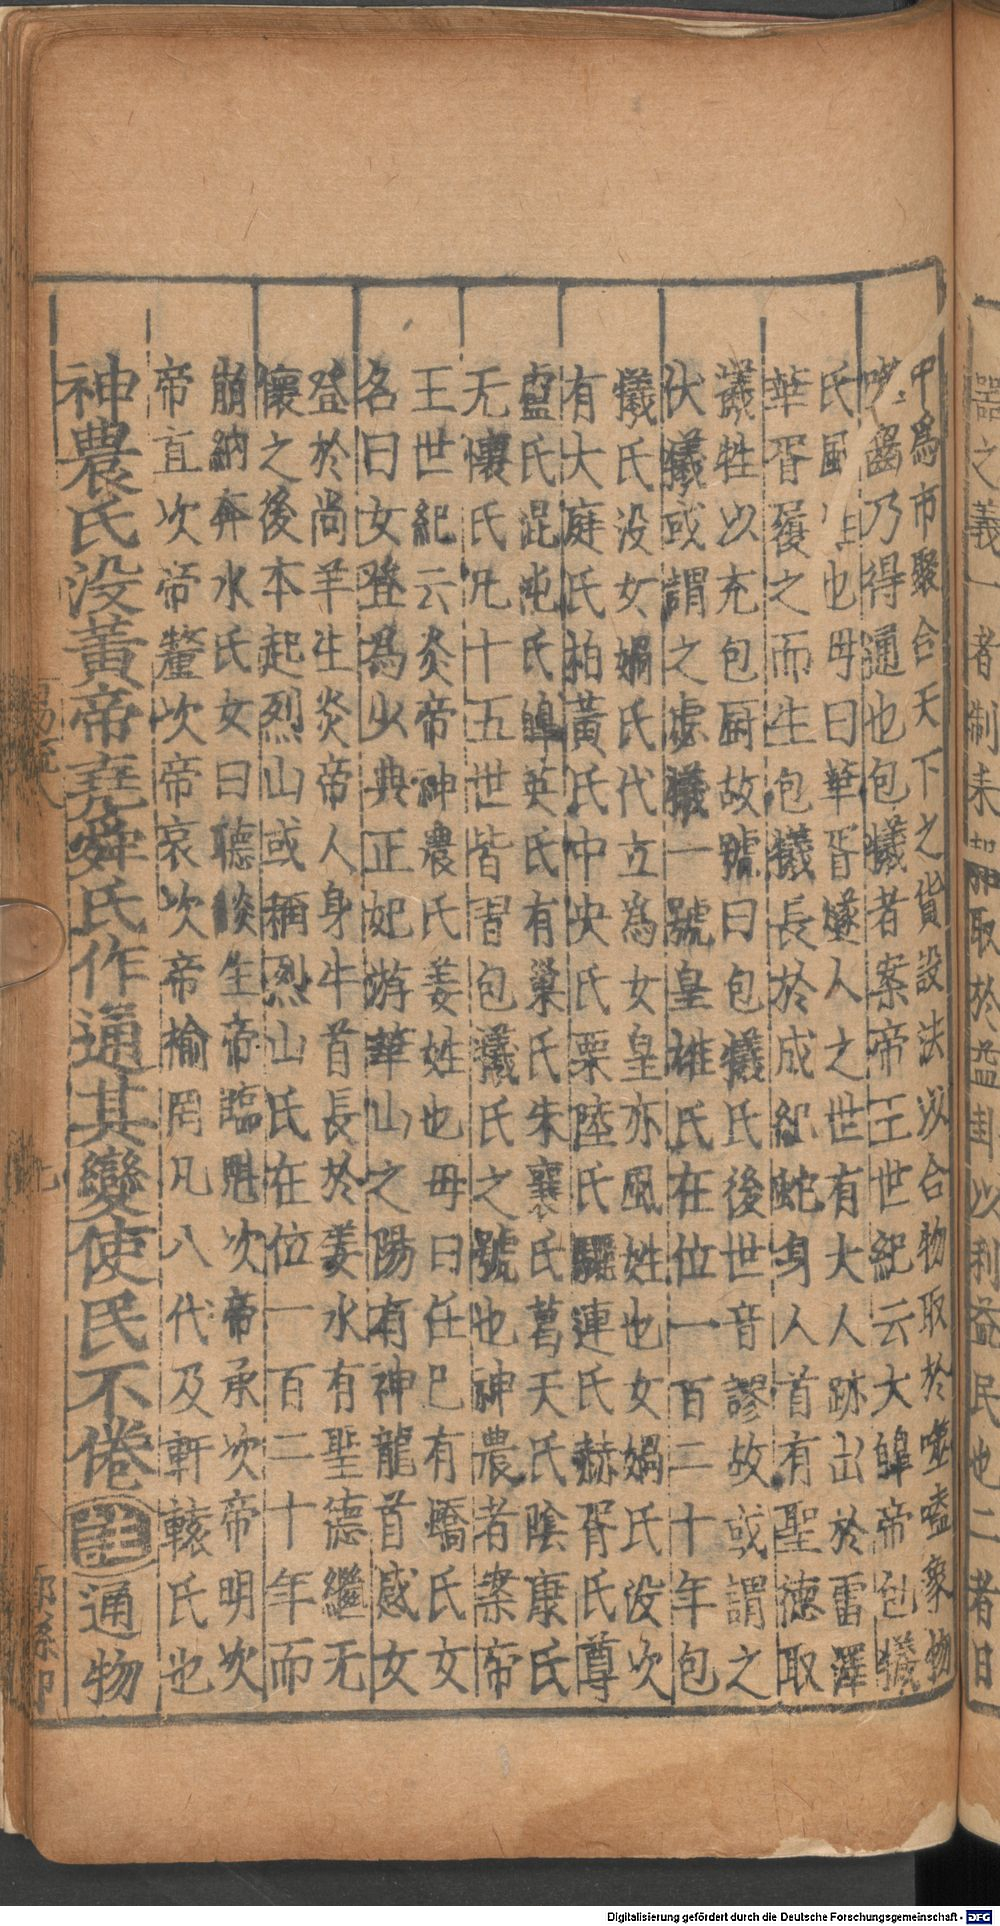 器之義一者制耒耜取於益卦以利益民也二者日
中爲市聚合天下之貨設法以合物取於噬嗑象物
噬齧乃得通也包犧者案帝王世紀云大皥帝包犧
氏風姓也毋曰華胥燧人之世有大人跡出於雷澤
華胥履之而生包犧長於成紀蛇身人首有聖德取
犧牲以充包厨故號曰包犧氏後世音謬故或謂之
伏犧或謂之虙犧一號皇雄氏在位一百二十年包
犧氏没女媧氏代立為女皇亦風姓也女媧氏没次
有大庭氏柏黃氏中央氏栗陸氏驪連氏赫胥氏尊
盧氏混沌氏皥英氏有巢氏朱襄氏葛天氏陰康氏
无懷氏凡十五世皆習包犧氏之號也神農者案帝
王世紀云炎帝神農氏姜姓也毋曰任巳有蟜氏女
名曰女登為少典正妃游華山之陽有神龍首感女
登於尚羊生炎帝人身牛首長於姜水有聖德繼无
懷之後本起烈山或稱烈山氏在位一百二十年而
崩納奔水氏女曰聽談生帝臨魁次帝承次帝明次
帝直次帝釐次帝哀次帝榆罔凡八代及軒轅氏也
神農氏没黃帝堯舜氏作通其變使民不倦註通物